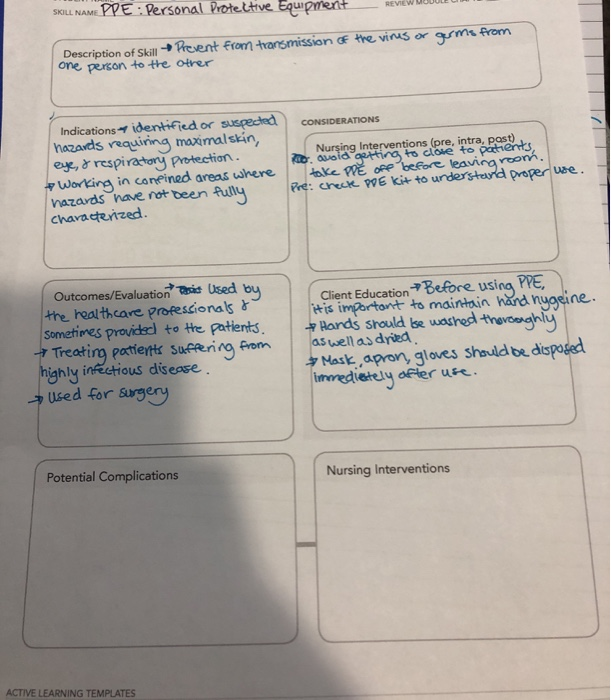 SKILL NAME PPE : Personal Protective Equipment
REVIEW MODULE
Description of Skill → Prevent from transmission of the virus or germs from
one person to the other
Indications → identified or suspected
hazards requiring maximal skin,
eye, & respiratory protection.
→ Working in confined areas where
hazards have not been fully
characterized.
CONSIDERATIONS
Nursing Interventions (pre, intra, post)
avoid getting to close to patients,
take PPE off before leaving room.
Pre: check PPE kit to understand proper use.
Outcomes/Evaluation → Used by
the healthcare professionals &
sometimes provided to the patients.
→ Treating patients suffering from
highly infectious disease.
→ Used for surgery
Client Education → Before using PPE,
it is important to maintain hand hygeine.
→ Hands should be washed thoroughly
as well as dried.
→ Mask, apron, gloves should be disposed
immediately after use.
Potential Complications
Nursing Interventions
ACTIVE LEARNING TEMPLATES